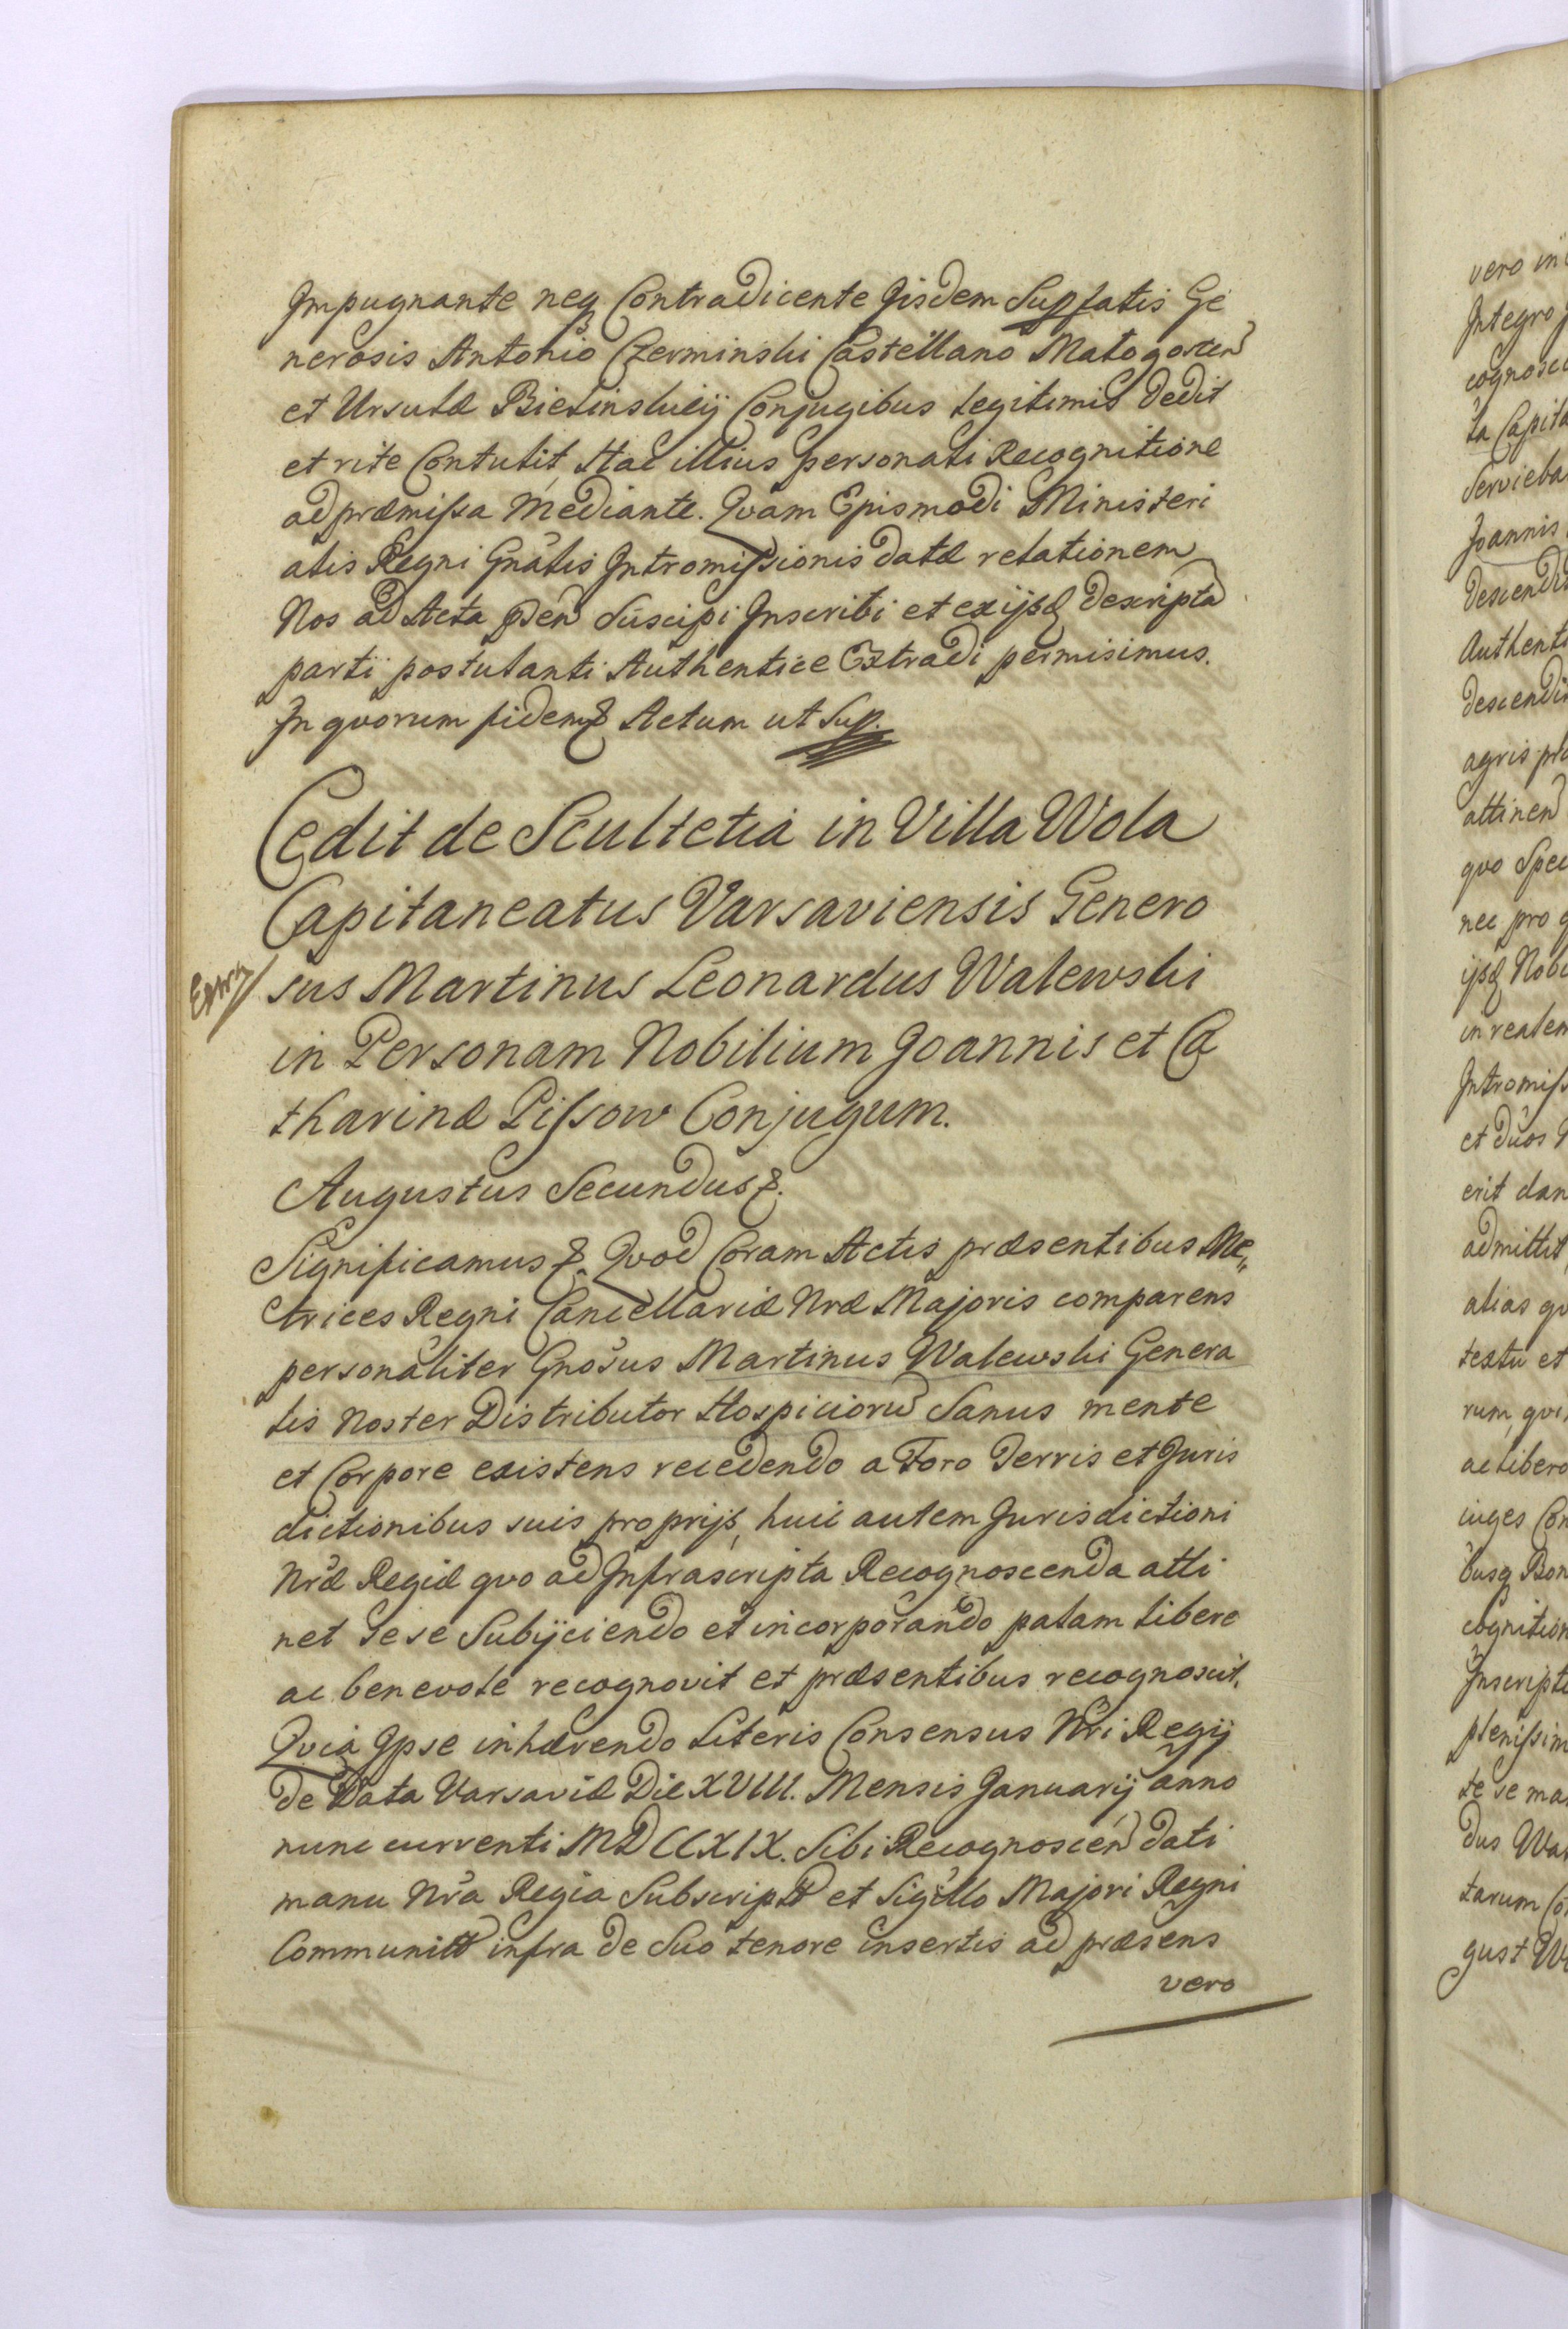 Impugnante neq Contradicente Iisdem Supfatis Ge
nerosis Antonio Czerminski Castellano Małogoscen
et Ursulæ Bielinskiey Conjugibus legitimis dedit
et rite Contulit, Hac illius personali Recognitione
ad præmissa Mediante. Qvam Ejusmodi Ministeri
alis Regni Gnãlis Intromissionis datæ relationem
Nos ad Acta psen Suscipi Inscribi et ex ijsd descripta
parti postulanti Authentice Extradi permisimus.
In qvorum fidem & Actum ut Sup.
Cedit de Scultetia in Villa Wola
Capitaneatus Varsaviensis Genero
sus Martinus Leonardus Walewski
in Personam Nobilium Joannis et Ca
tharinæ Pissow Conjugum.
Augustus Secundus &.
Significamus &. Qvod Coram Actis præsentibus Me,,
trices Regni Cancellariæ Nræ Majoris comparens
personaliter Gnosus Martinus Walewski Genera
lis Noster Distributor Hospiciorũ Sanus mente
et Corpore existens recedendo a Foro Terris et Juris
dictionibus suis proprijs, huic autem Jurisdictioni
Nræ Regiæ qvo ad Infrascripta Recognoscenda atti
net Se se Subijciendo et incorporando palam libere
ac benevole recognovit et præsentibus recognoscit,
Qvia Ipse inhærendo Literis Consensus Nri Regij
de Data Varsaviæ Die XVIII. Mensis Januarij anno
nunc currenti MDCCXIX. Sibi Recognoscen dati
manu Nra Regia Subscript et Sigillo Majori Regni
Communit infra de Suo tenore insertis ad præsens
vero
vero in
Integro
cognosc
ta Capita
Servieba
Joannis
descendit
Authenti
descendi
agris pr
attinen
qvo Spec
nec pro
ijsd Nobi
in realem
Intromiss
et duos
erit dan
admittit
alias qv
textu et
rum, qvi
ac libero
iuges Con
busq Bon
cognition
Inscript
plenissim
te se ma
dus Wal
tarum Co
gust W